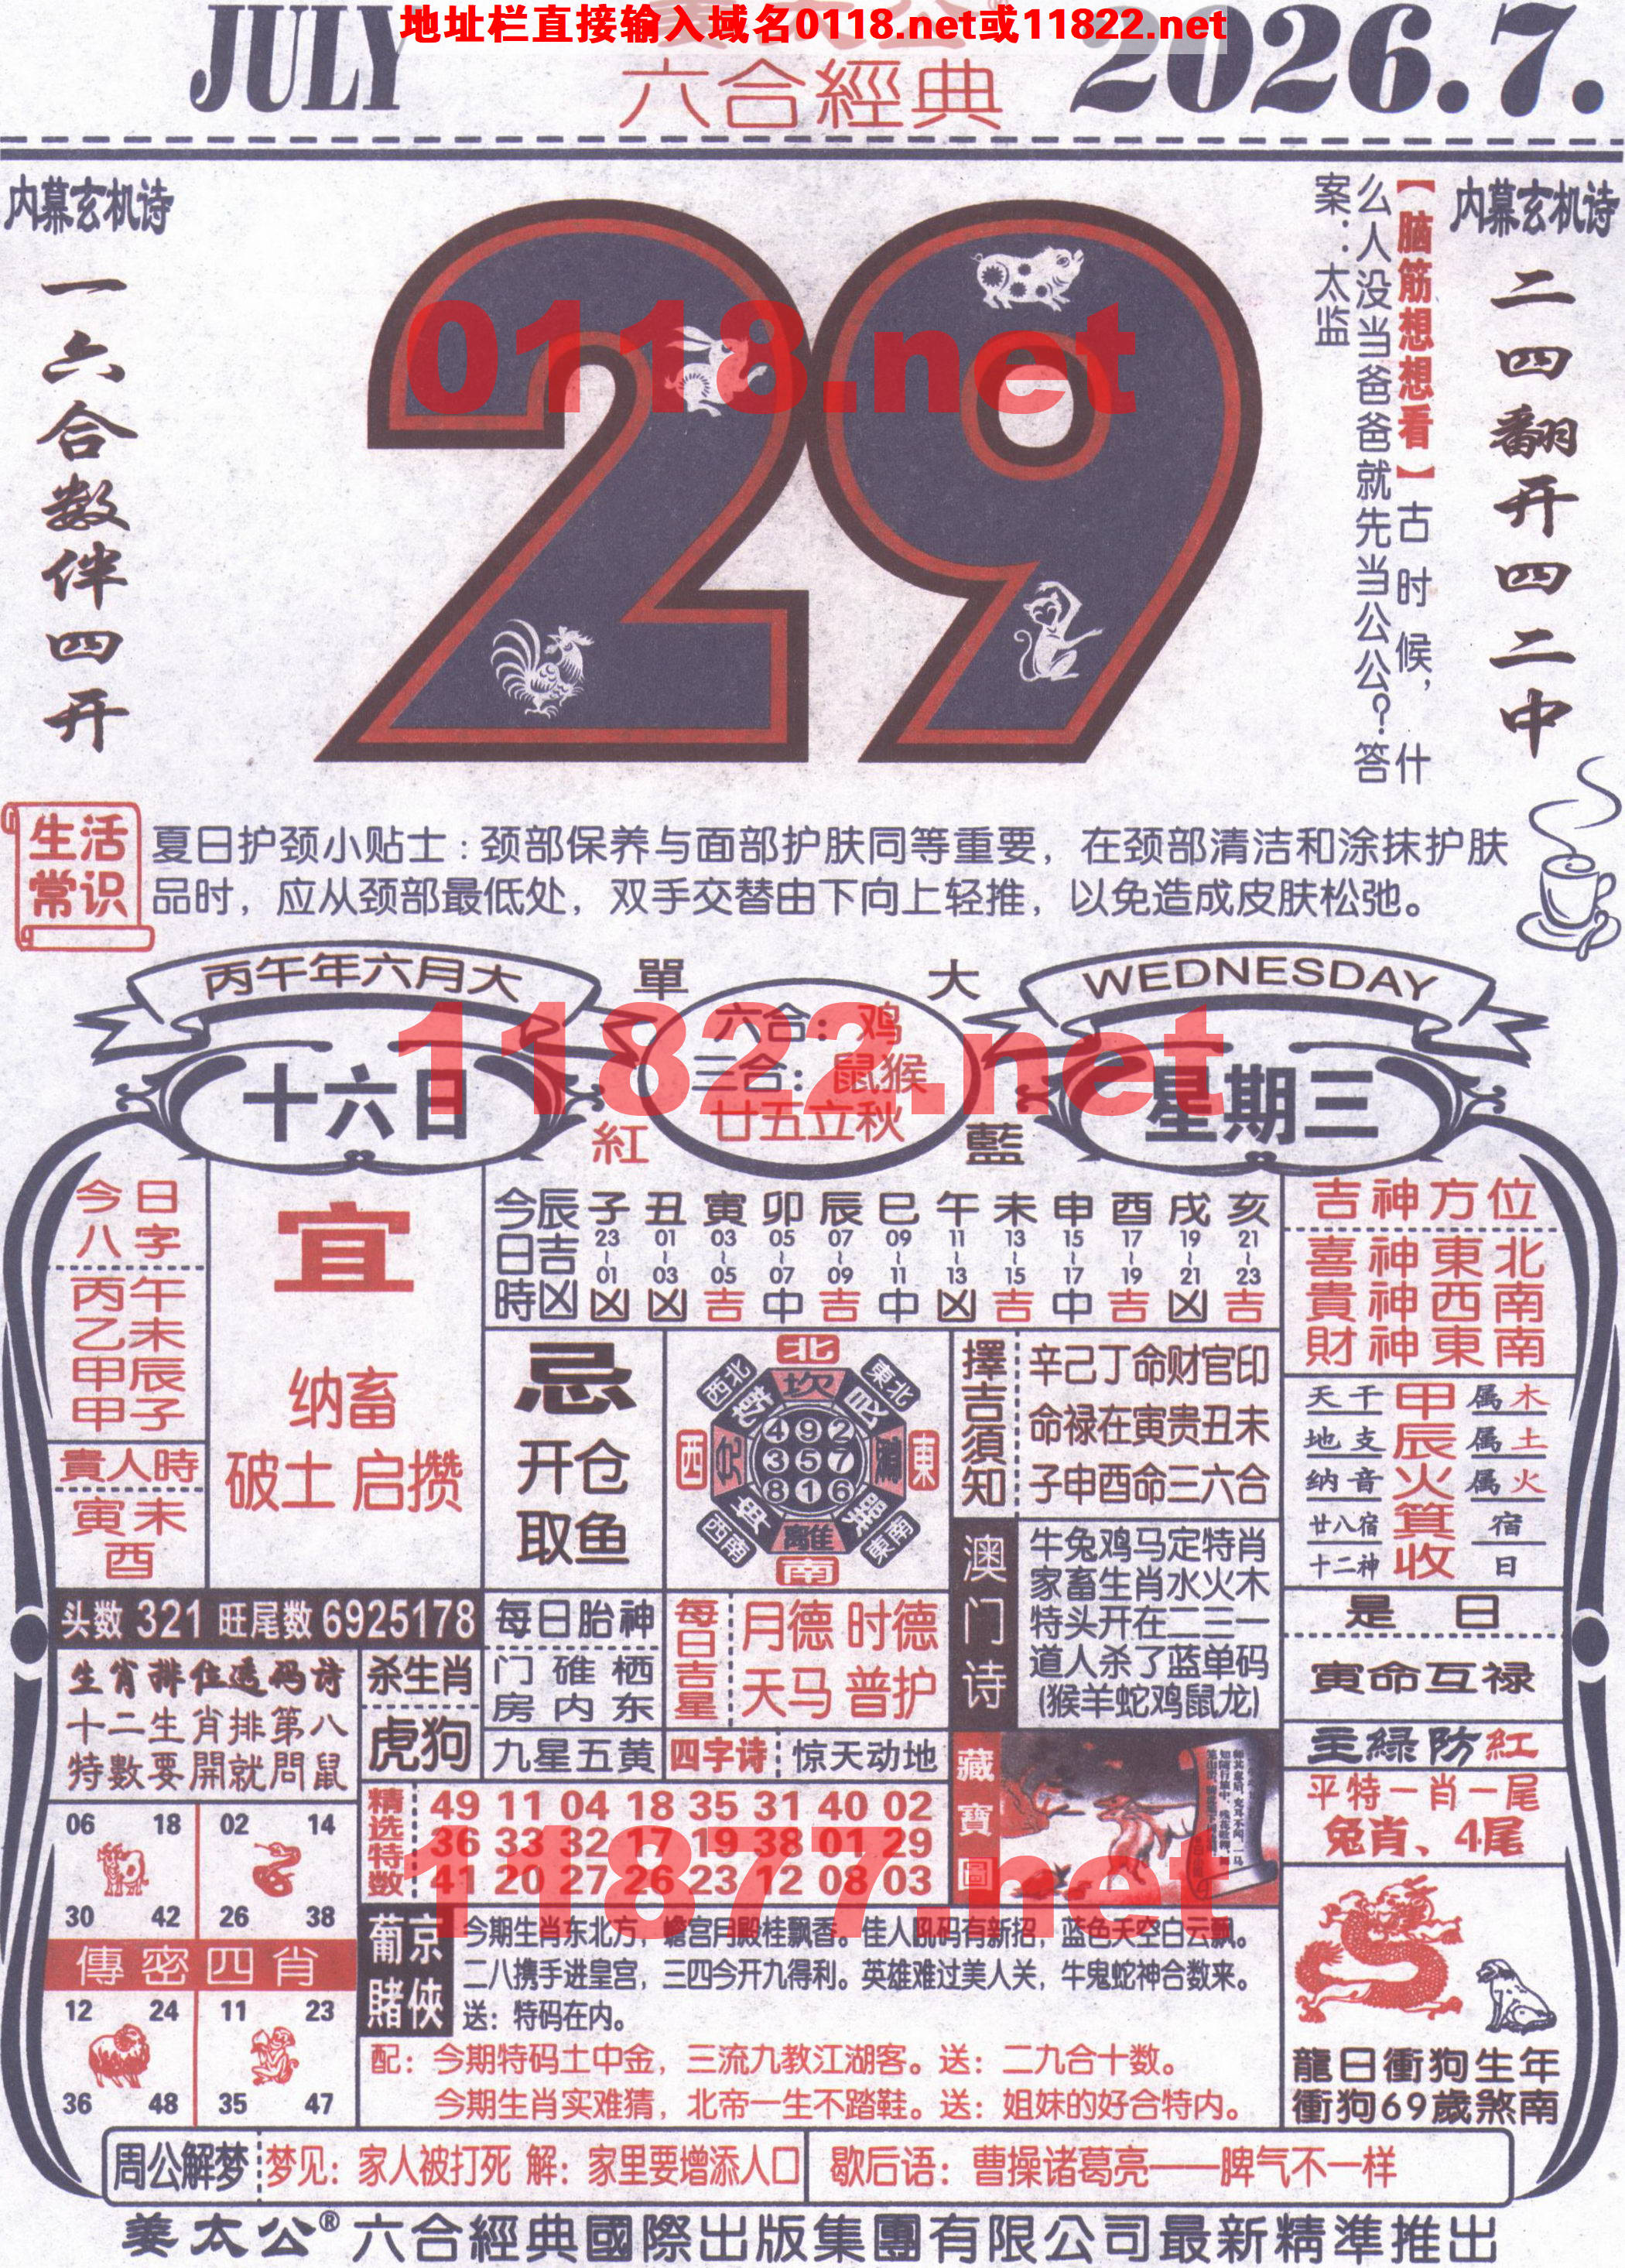 地址栏直接输入域名0118.net或11822.net
JULY
六合經典
2026.7.
内幕玄机诗
一六合数伴四开
29
0118.net
【脑筋想想看】古时候，什
么人没当爸爸就先当公公？答
案：太监
内幕玄机诗
二四翻开四二中
生活
常识
夏日护颈小贴士：颈部保养与面部护肤同等重要，在颈部清洁和涂抹护肤
品时，应从颈部最低处，双手交替由下向上轻推，以免造成皮肤松弛。
丙午年六月大
十六日
單
大
六合：鸡
三合：鼠猴
廿五立秋
紅
藍
WEDNESDAY
星期三
11822.net
今日
八字
丙午
乙未
甲辰
甲子
貴人時
寅未
酉
宜
纳畜
破土 启攒
今辰 子 丑 寅 卯 辰 巳 午 未 申 酉 戌 亥
日吉 23~01 01~03 03~05 05~07 07~09 09~11 11~13 13~15 15~17 17~19 19~21 21~23
時凶 凶 凶 吉 中 吉 中 凶 吉 中 吉 凶 吉
忌
开仓
取鱼
北
西北 東北
坎
乾
西 東
兌
4 9 2
3 5 7
8 1 6
離
西南 東南
南
擇吉須知
辛己丁命财官印
命禄在寅贵丑未
子申酉命三六合
吉神方位
喜神東北
貴神西南
財神東南
天干 甲 属木
地支 辰 属土
纳音 火 属火
廿八宿 箕 宿
十二神 收 日
是日
寅命互禄
主緑防紅
平特一肖一尾
兔肖、4尾
澳门诗
牛兔鸡马定特肖
家畜生肖水火木
特头开在二三一
道人杀了蓝单码
(猴羊蛇鸡鼠龙)
头数 321 旺尾数 6925178
生肖排位透码诗
十二生肖排第八
特數要開就問鼠
杀生肖
虎狗
每日胎神
门碓栖
房内东
每日吉星
月德 时德
天马 普护
九星五黄
四字诗：惊天动地
藏寶圖
精选特数
49 11 04 18 35 31 40 02
36 33 32 17 19 38 01 29
41 20 27 26 23 12 08 03
11877.net
06 18 02 14
30 42 26 38
傳密四肖
12 24 11 23
36 48 35 47
葡京
賭俠
今期生肖东北方，蟾宫月殿桂飘香。佳人吼码有新招，蓝色天空白云飘。
二八携手进皇宫，三四今开九得利。英雄难过美人关，牛鬼蛇神合数来。
送：特码在内。
配：今期特码土中金，三流九教江湖客。送：二九合十数。
今期生肖实难猜，北帝一生不踏鞋。送：姐妹的好合特内。
龍日衝狗生年
衝狗69歲煞南
周公解梦 梦见：家人被打死 解：家里要增添人口 歇后语：曹操诸葛亮——脾气不一样
姜太公®六合經典國際出版集團有限公司最新精準推出